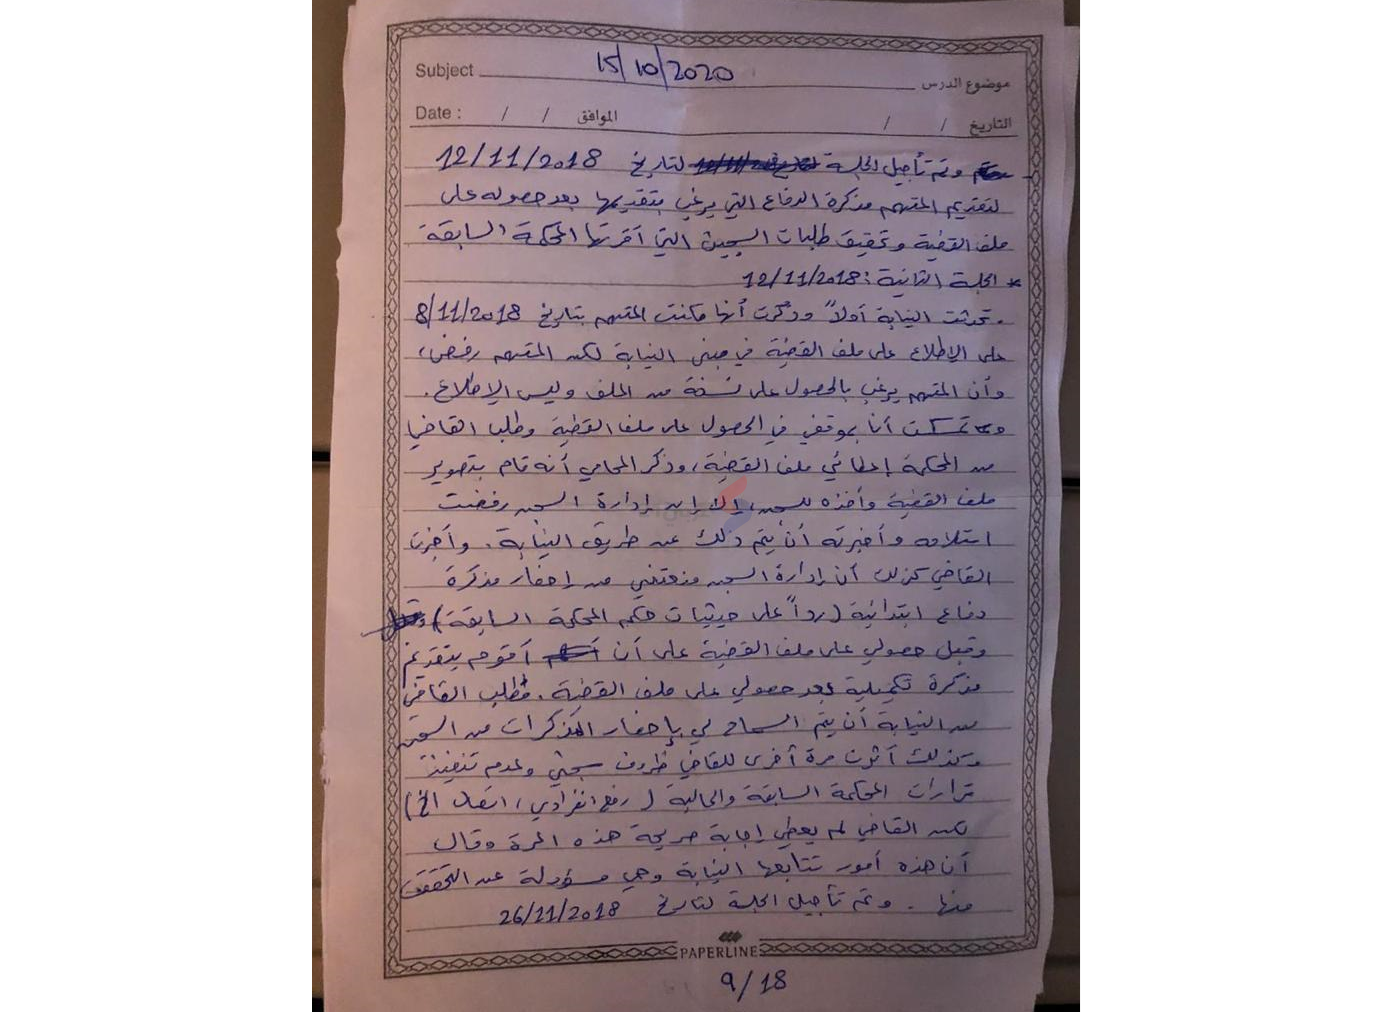 Subject 15/10/2020 موضوع الدرس
Date : / / الموافق / / التاريخ
وتم تأجيل الجلسة لتاريخ 12/11/2018
لتقديم المتهم مذكرة الدفاع التي يرغب بتقديمها بعد حصوله على
ملف القضية وتحقيق طلبات السجين التي أقرتها المحكمة السابقة
* الجلسة الثانية: 12/11/2018
. تحدثت النيابة أولاً وذكرت أنها مكنت المتهم بتاريخ 8/11/2018
على الإطلاع على ملف القضية في مبنى النيابة لكن المتهم رفض،
وأن المتهم يرغب بالحصول على نسخة من الملف وليس الإطلاع.
تمسكت أنا بموقفي في الحصول على ملف القضية وطلب القاضي
من المحكمة إعطائي ملف القضية، وذكر المحامي أنه قام بتصوير
ملف القضية وأخذه للسجن، إلا إن إدارة السجن رفضت
استلامه وأخبرته أن يتم ذلك عن طريق النيابة. وأخبرت
القاضي كذلك أن إدارة السجن منعتني من إحضار مذكرة
دفاع ابتدائية (رداً على حيثيات حكم المحكمة السابقة)
وقبل حصولي على ملف القضية على أن أقوم بتقديم
مذكرة تكميلية بعد حصولي على ملف القضية. فطلب القاضي
من النيابة أن يتم السماح لي بإحضار المذكرات من السجن
وكذلك أثرت مرة أخرى للقاضي ظروف سجني وعدم تنفيذ
قرارات المحكمة السابقة والحالية (رفع انفرادي، اتصال الخ)
لكن القاضي لم يعطي إجابة صريحة هذه المرة وقال
أن هذه أمور تتابعها النيابة وهي مسؤولة عن التحقق
منها. وتم تأجيل الجلسة لتاريخ 26/11/2018
PAPERLINE
9/18